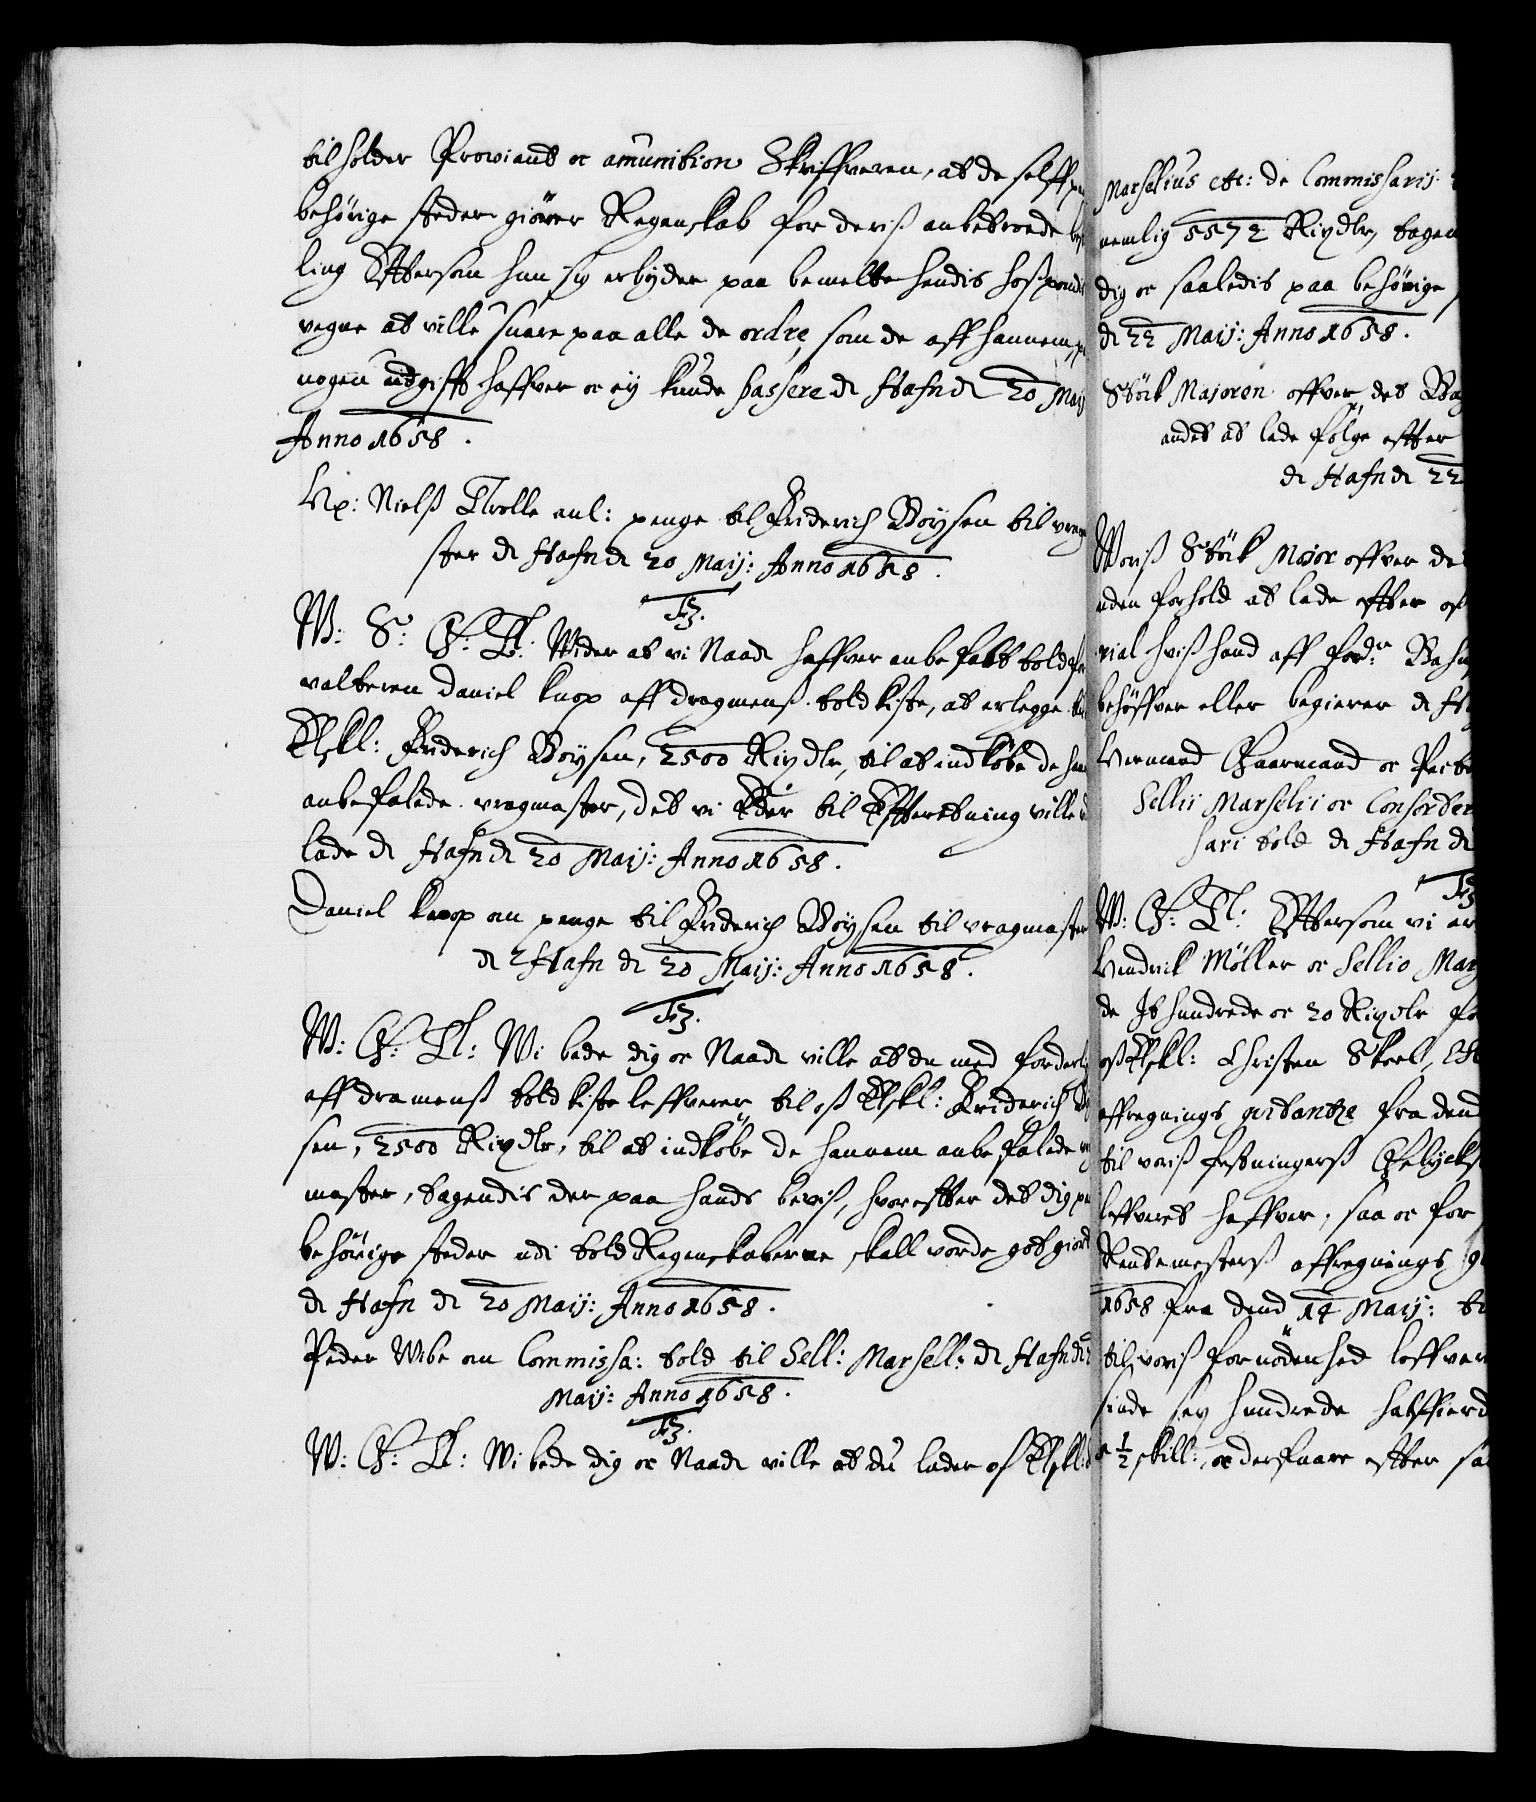 tilholder Proviant oc amunition Skriffveren, at de selff paa
behörige steder giörer Regenskab for deriß anbetroede
ling Efftersom hun sig erbyder paa bemelte hendis hoßpondis
vegne at ville suare paa alle de ordre, som de aff hannem,
nogen udgifft haffver oc ey kunde passere de Hafn d 20 Maij
Anno 1658.
Nielß Trolle anl: penge til Friderich Boysen til vrag
ster de Hafn d 20 Maij: Anno 1658.
F3.
W: S: G: T: Wider at vi Naad: haffver anbefalt toldfor
valteren Daniel Knop aff dragmenß toldkiste, at erlegge til
Elskl: Friderich Boysen, 2500 Rixdlr, til at indköbe de ham
anbefalede vragmaster, det vi Eder til Effterretning ville
lade de Hafn d 20 Maij: Anno 1658.
Daniel Knop om penge til Friderich Boysen til vragmaster
de Hafn d 20 Maij: Anno 1658.
F3.
W: G: T: Wi bede dig oc Naad: ville at du med forderlig
aff dramenß toldkiste leffverer til oß Elskl: Friderich Boy
sen, 2500 Rixdlr, til at indköbe de hannem anbefalede
master, tagendis der paa hands beviß, hvoreffter det dig paa
behörige steder udi told Regenskaberne skall vorde godgiort
de Hafn d 20 Maij: Anno 1658.
Peder Wibe om Commissa: told til Sell: Marsell: de Hafn d
Maij: Anno 1658.
F3.
W: G: T: Wi bede dig oc Naad: ville at du lader oß Elskl:
Marselius etc: de Commissarij
nemlig 5572 Rixdlr, tagen
dig oc saaledis paa behörige
d 22 Maij: Anno 1658.
Stück Majoren offver det
andet at lade fölge effter
de Hafn d 22
Woriß Stück Major offver de
uden forhold at lade effter
rial hviß hand aff
behöffver eller begierer de
Hermand Gaarmand oc
Sellij Marselij oc Consorter
sari told de Hafn d
F3
W: G: T: Efftersom vi er
Hendrick Möller oc Sellio Mar
de It hundrede oc 20 Rixdlr
oß Elskl: Christen Skeel,
affregnings qvitantze fra dend
til voriß festningerß Gelyck
leffveret haffver, saa oc for
Rentemesterß affregnings
1658 fra dend 14 Maij:
til voriß fornödenhed leffver
sinde sex hundrede halffierd
½ skill:, oc derfaare effter